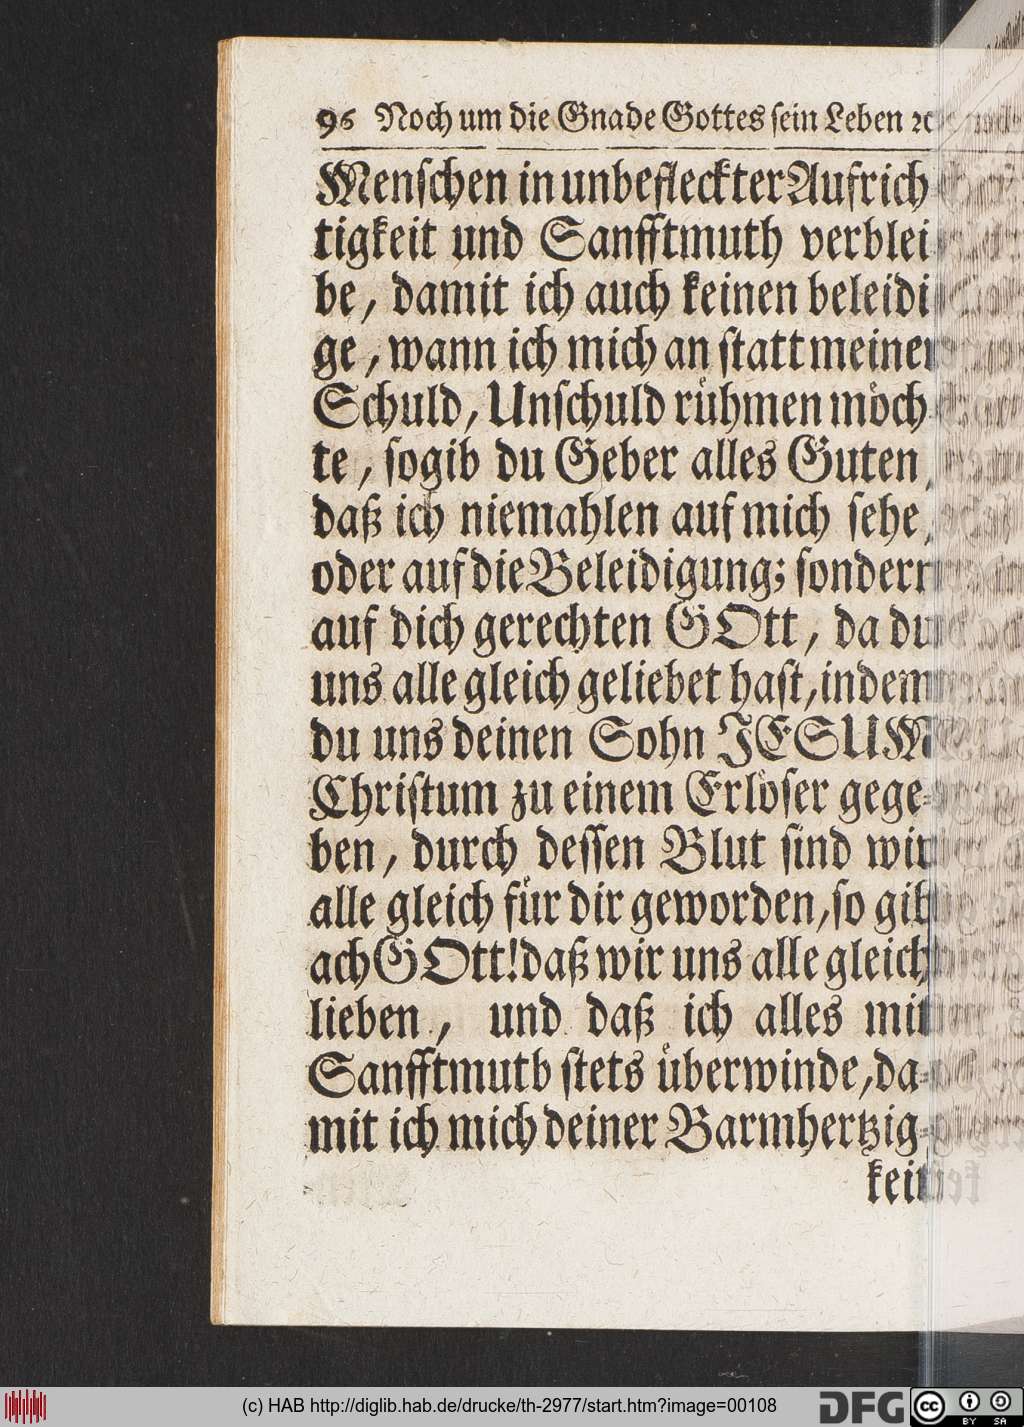 96 Noch um die Gnade Gottes sein Leben ꝛc
Menschen in unbefleckter Aufrich
tigkeit und Sanfftmuth verblei
be, damit ich auch keinen beleidi
ge, wann ich mich an statt meiner
Schuld, Unschuld rühmen möch
te, so gib du Geber alles Guten,
daß ich niemahlen auf mich sehe,
oder auf die Beleidigung; sondern
auf dich gerechten GOtt, da du
uns alle gleich geliebet hast, indem
du uns deinen Sohn JESUM
Christum zu einem Erlöser gege-
ben, durch dessen Blut sind wir
alle gleich für dir geworden, so gib
ach GOtt! daß wir uns alle gleich
lieben, und daß ich alles mit
Sanfftmuth stets überwinde, da-
mit ich mich deiner Barmhertzig-
keit
(c) HAB http://diglib.hab.de/drucke/th-2977/start.htm?image=00108
DFG
cc BY SA